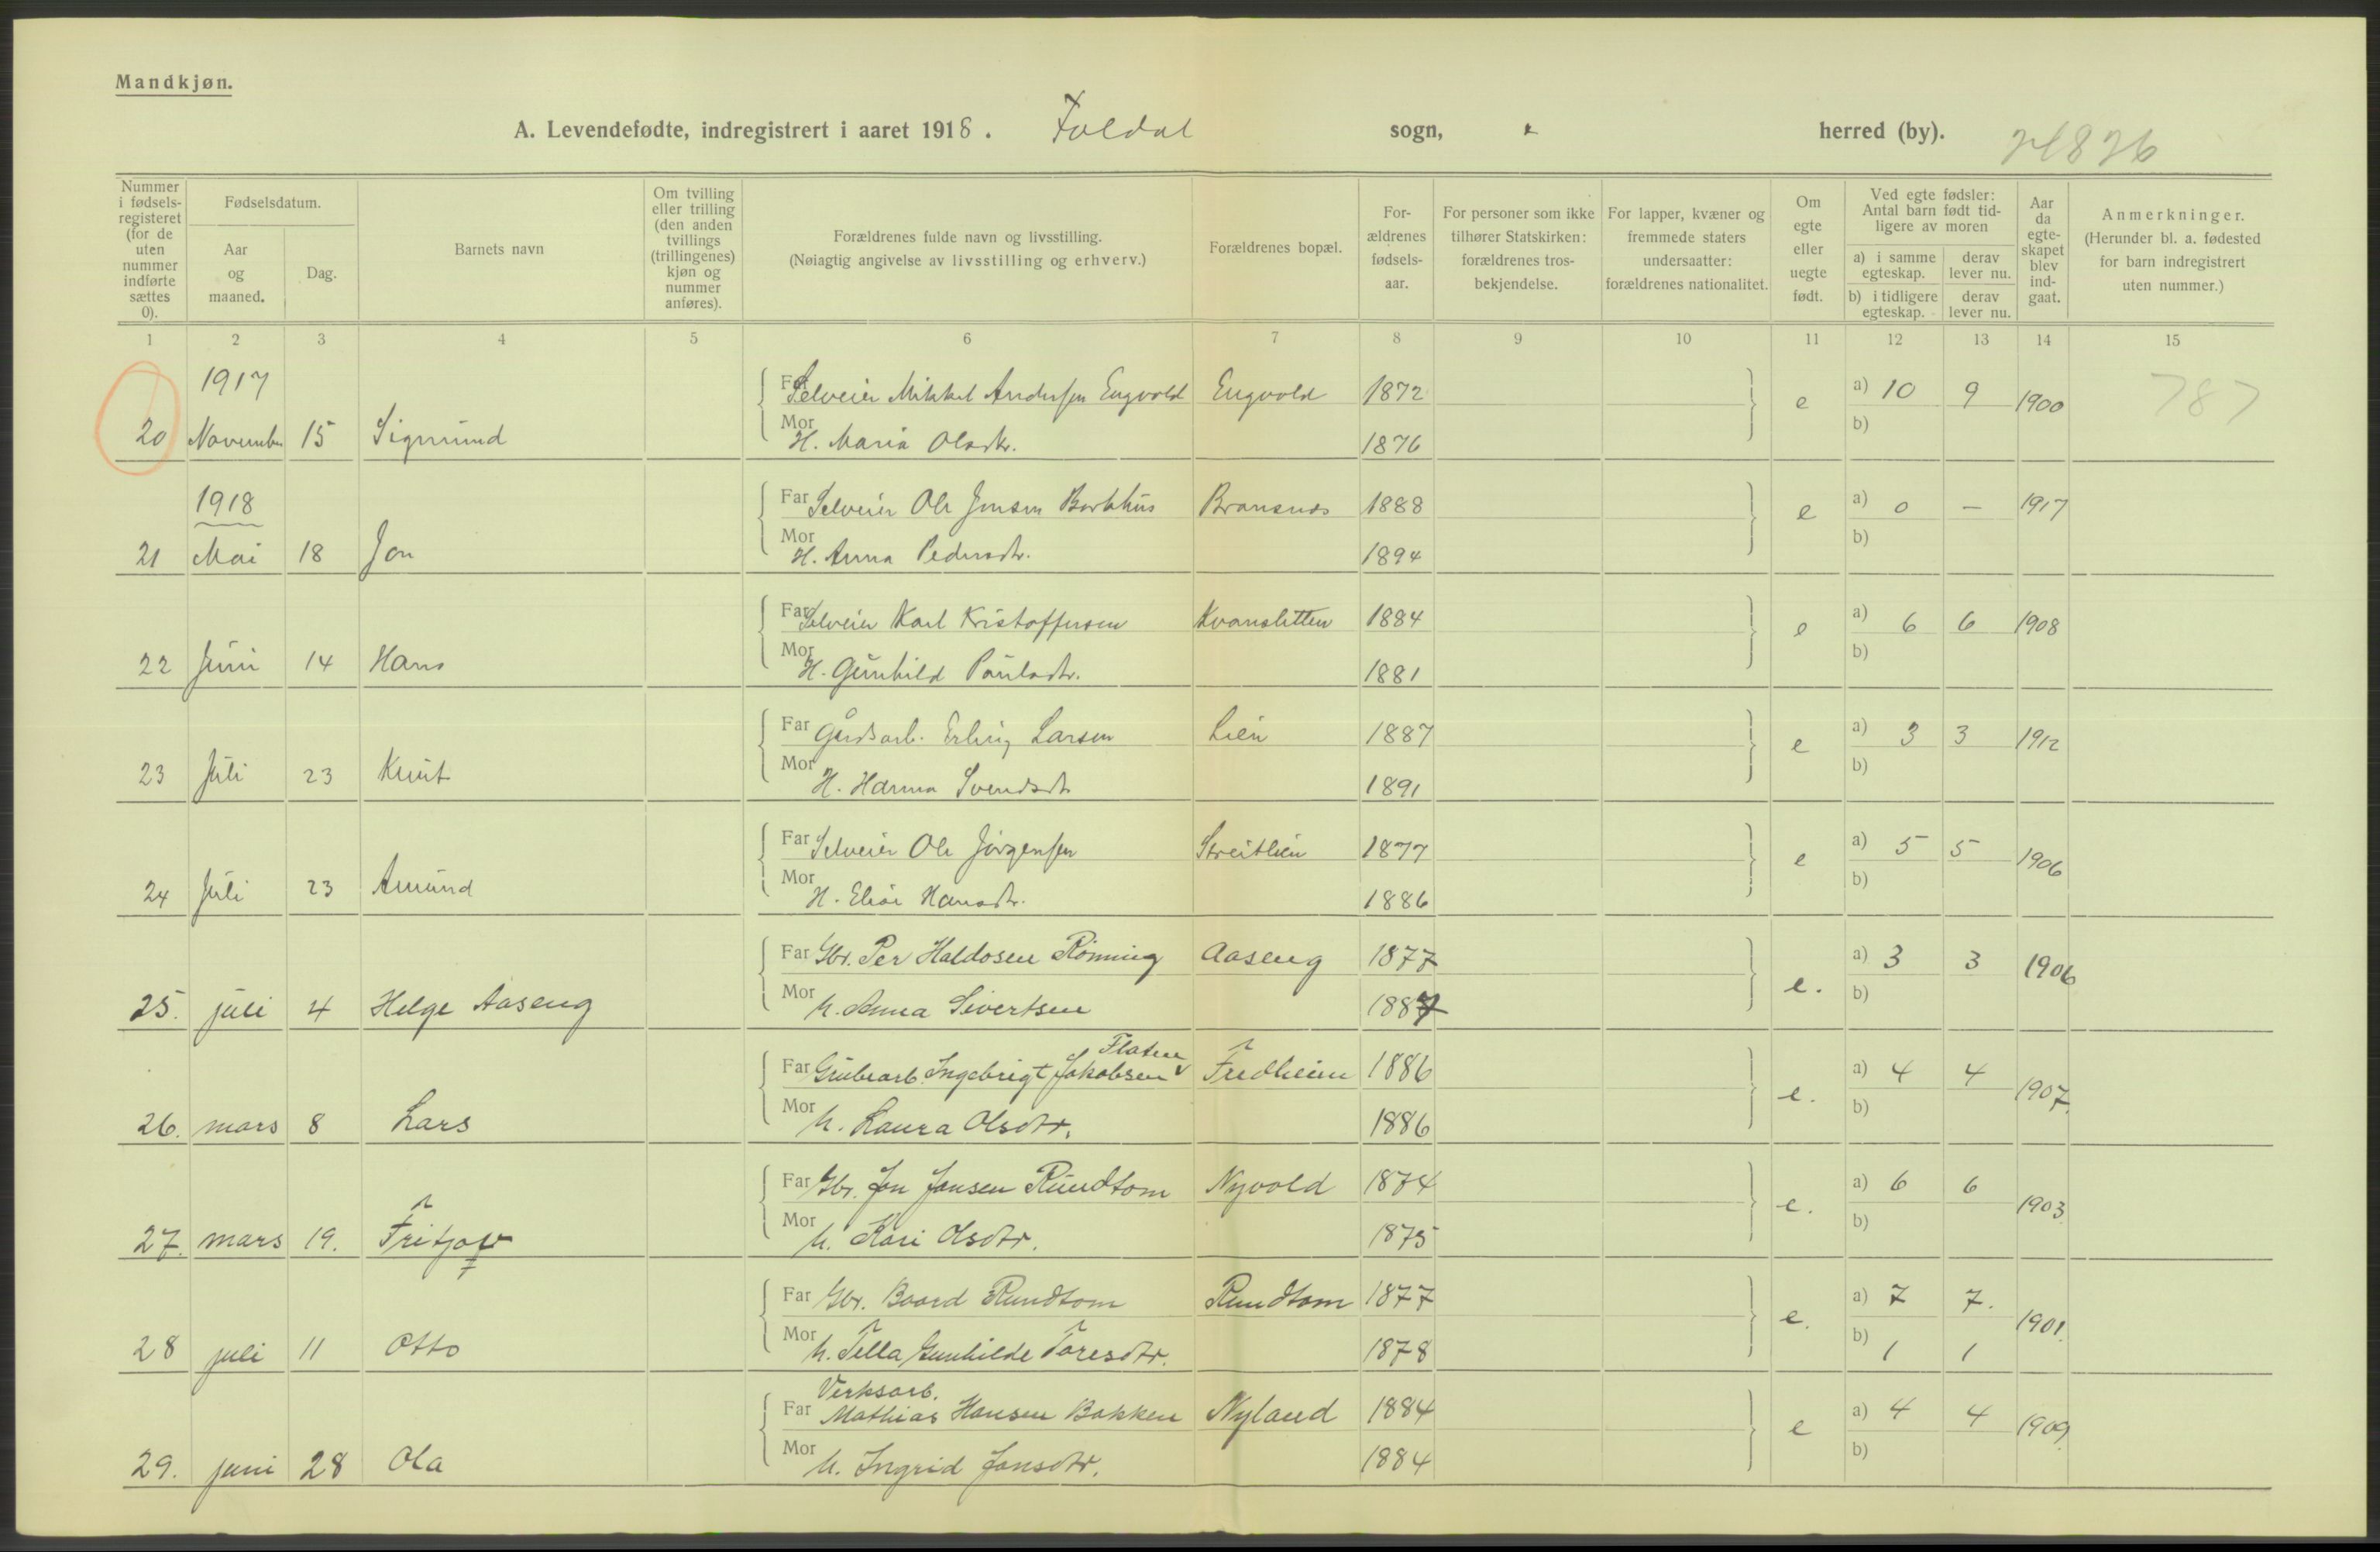 Mandkjøn.
A. Levendefødte, indregistrert i aaret 1918. Foldal sogn, herred (by).
Nummer i fødsels-registeret (for de uten nummer indførte sættes 0).
Fødselsdatum.
Aar og maaned.
Dag.
Barnets navn
Om tvilling eller trilling (den anden tvillings (trillingenes) kjøn og nummer anføres).
Forældrenes fulde navn og livsstilling.
(Nøiagtig angivelse av livsstilling og erhverv.)
Forældrenes bopæl.
For-ældrenes fødsels-aar.
For personer som ikke tilhører Statskirken: forældrenes tros-bekjendelse.
For lapper, kvæner og fremmede staters undersaatter: forældrenes nationalitet.
Om egte eller uegte født.
Ved egte fødsler: Antal barn født tid-ligere av moren
a) i samme egteskap.
derav lever nu.
b) i tidligere egteskap.
derav lever nu.
Aar da egte-skapet blev ind-gaat.
Anmerkninger.
(Herunder bl. a. fødested for barn indregistrert uten nummer.)
1 2 3 4 5 6 7 8 9 10 11 12 13 14 15
1917
Far Selveier Mikkel Andersen Engvold Engvold 1872 e a) 10 9 1900 787
20 November 15 Sigmund Mor H. Maria Olsdtr. 1876 b)
1918
Far Selveier Ole Jonsen Borkhus Bransnes 1888 e a) 0 – 1917
21 Mai 18 Jon Mor H. Anna Pedersdtr. 1894 b)
Far Selveier Karl Kristoffersen Kvanslitten 1884 e a) 6 6 1908
22 Juni 14 Hans Mor H. Gunhild Paulsdtr. 1881 b)
Far Gårdsarb. Erling Larsen Lien 1887 e a) 3 3 1912
23 Juli 23 Knut Mor H. Hanna Svendsdtr 1891 b)
Far Selveier Ole Jörgensen Streitlien 1877 e a) 5 5 1906
24 Juli 23 Amund Mor H. Elise Hansdtr. 1886 b)
Far Gbr. Per Haldosen Rönning Aaseng 1877 e. a) 3 3 1906
25. juli 4 Helge Aaseng Mor h. Anna Sivertsen 1887 b)
Flaten
Far Grubearb. Ingebrigt Jakobsen Fredheim 1886 e. a) 4 4 1907.
26. mars 8 Lars Mor h. Laura Olsdtr. 1886 b)
Far Gbr. Jon Jonsen Rundtom Nyvold 1874 e. a) 6 6 1903
27. mars 19. Fritjof Mor h. Kari Olsdtr. 1875 b)
Far Gbr. Baard Rundtom Rundtom 1877 e. a) 7 7. 1901.
28 juli 11 Otto Mor h. Tella Gunhilde Toresdtr. 1878 b) 1 1
Verksarb.
Far Mathias Hansen Bakken Nyland 1884 e a) 4 4 1909
29. juni 28 Ola Mor h. Ingrid Jonsdtr. 1884 b)